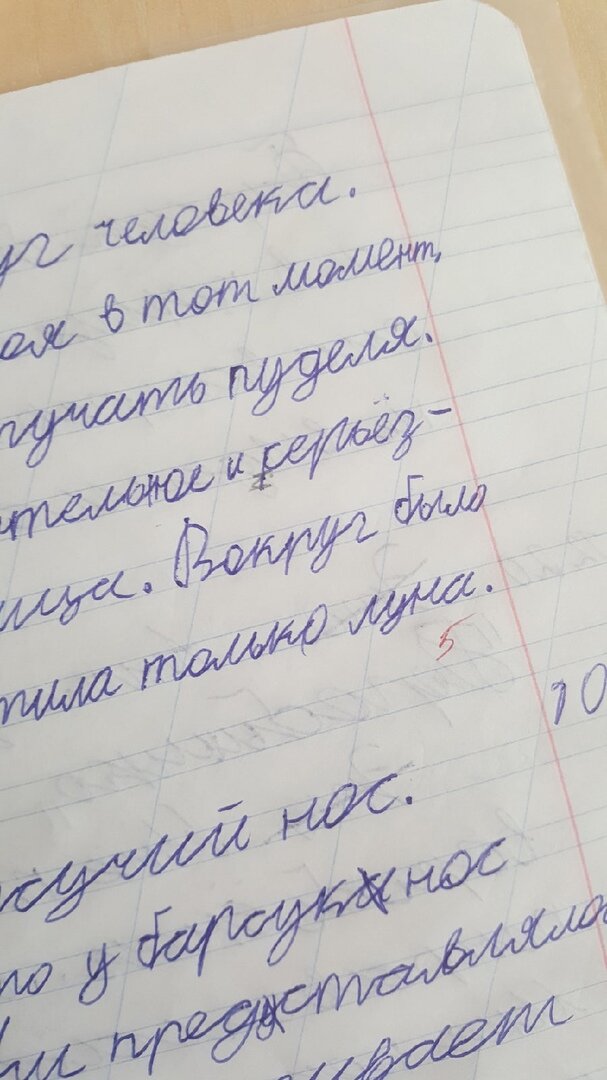 уг человека.
оя в тот момент,
лучать пуделя.
ительное и серьёз-
ица. Вокруг было
тила только луна.
5
10
сучий нос.
то у барсука нос
ли представляло
ивает